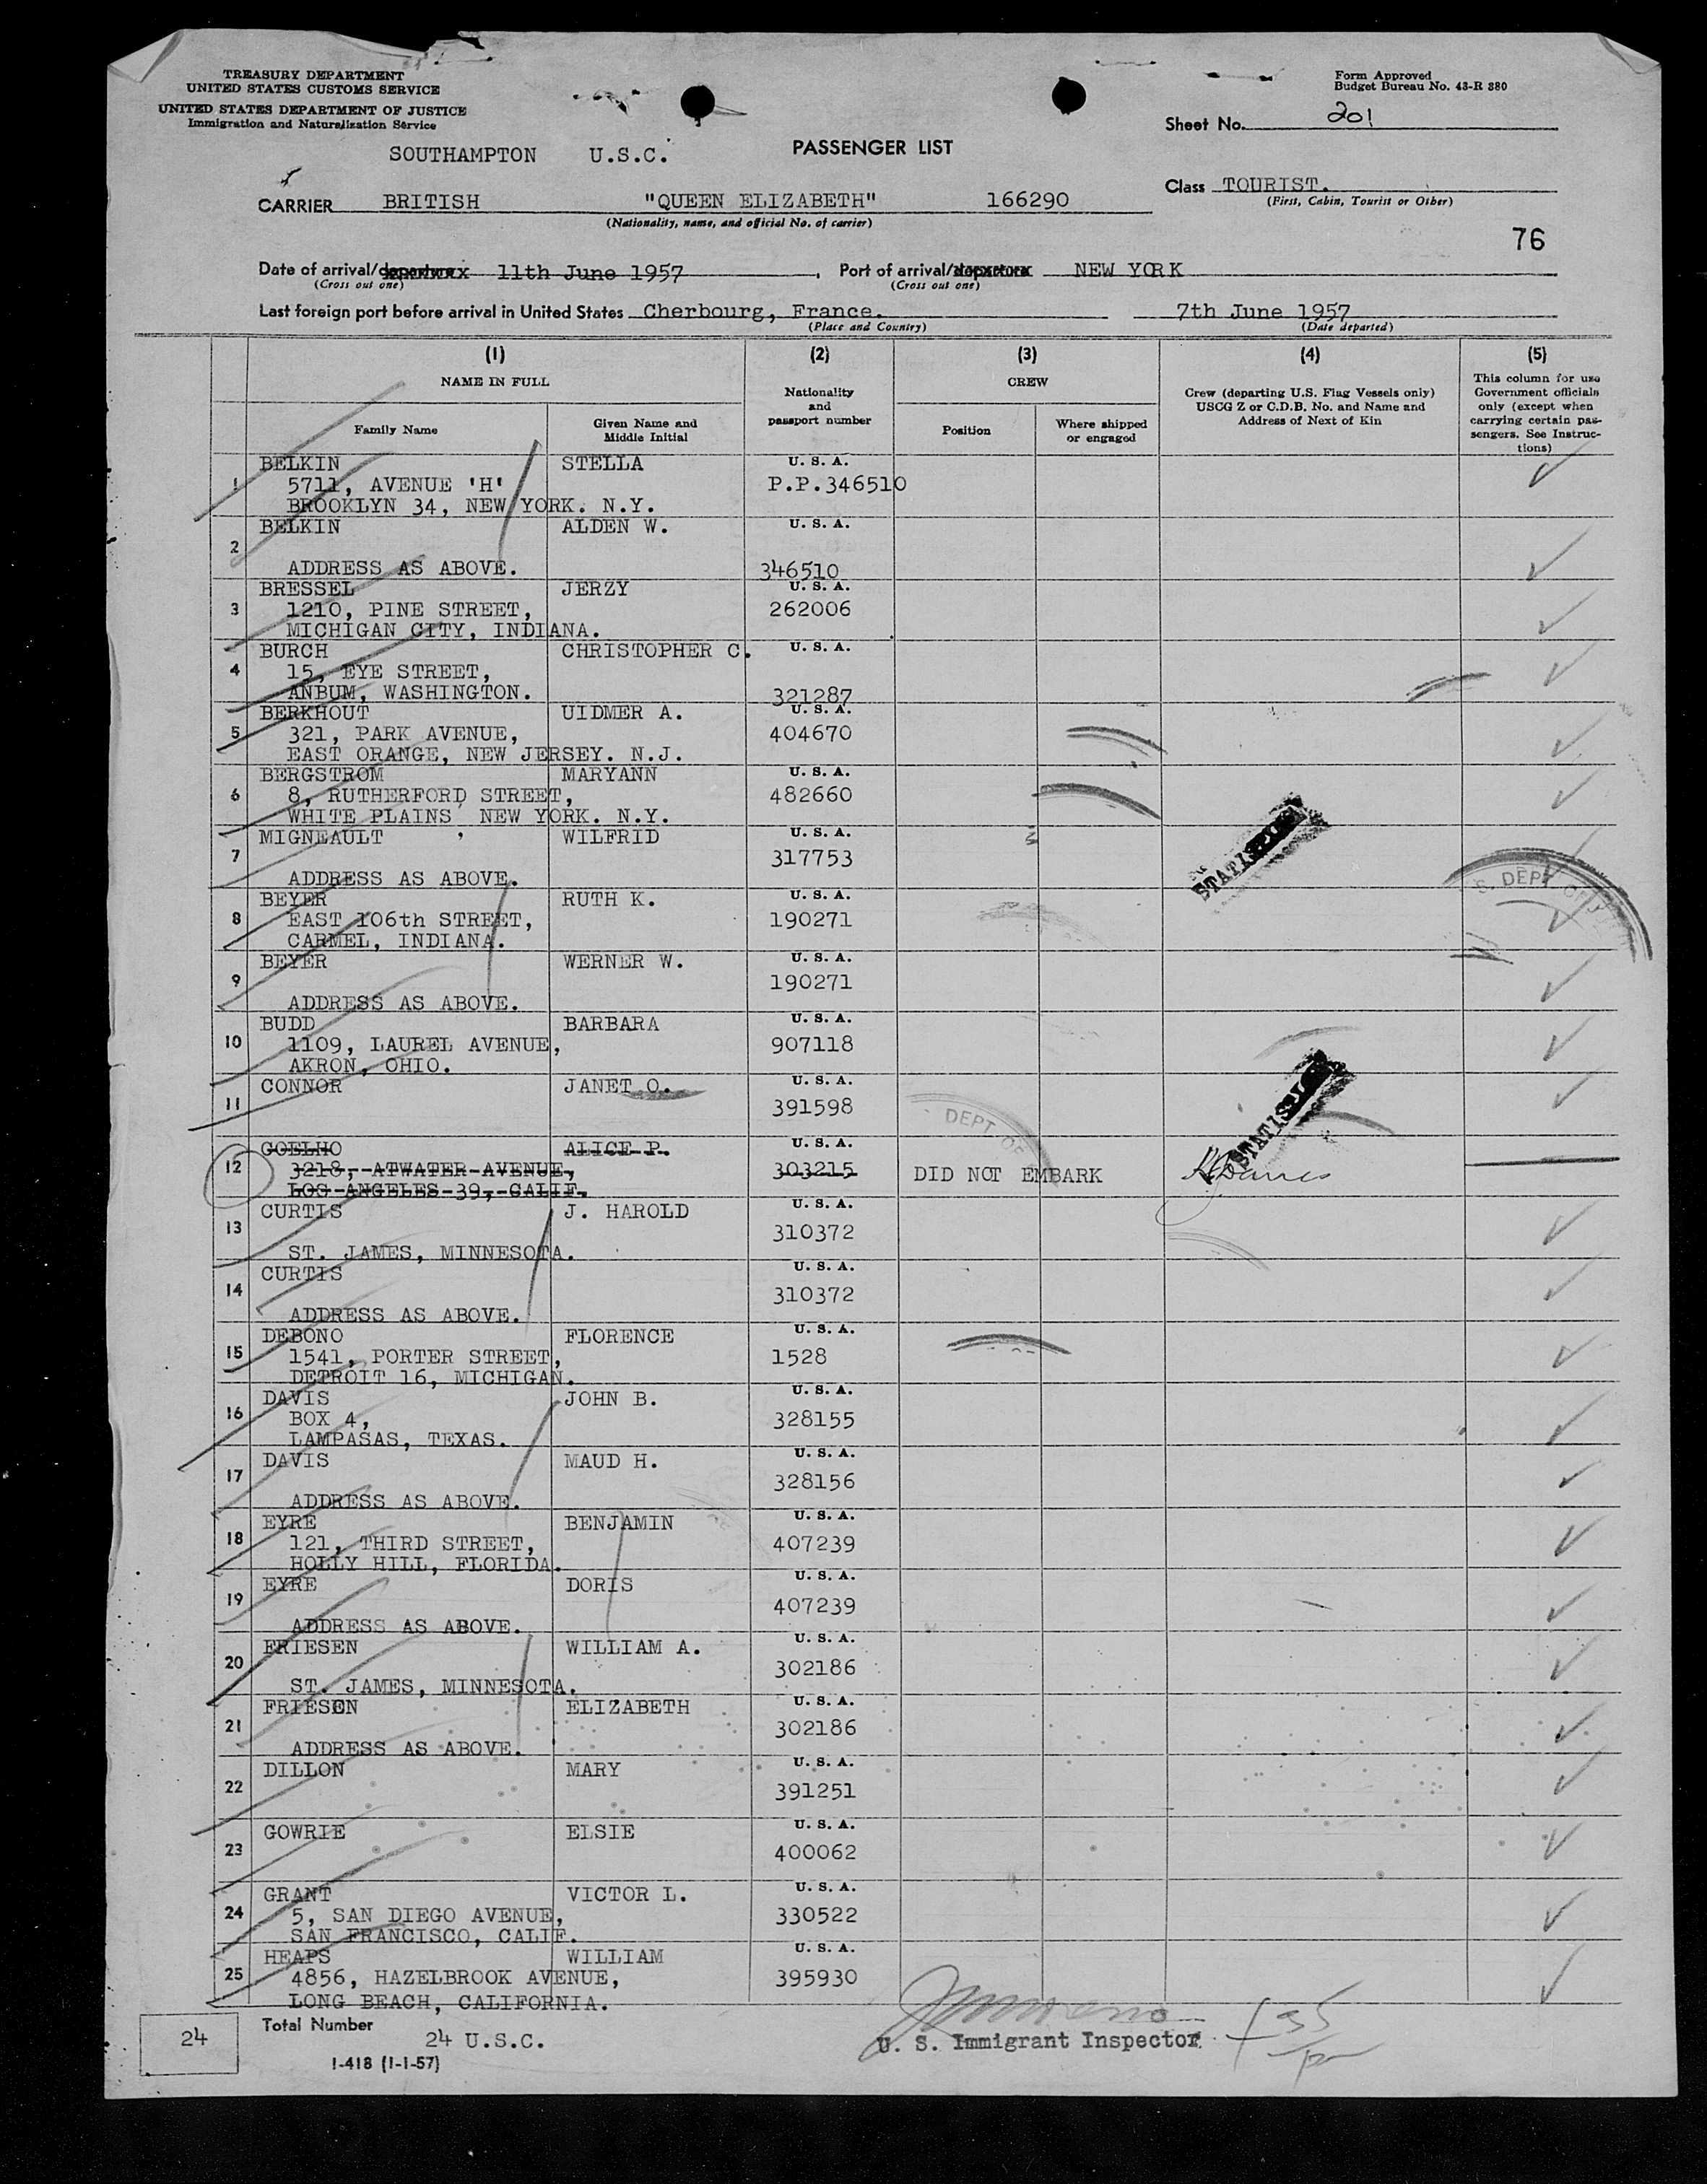 TREASURY DEPARTMENT
UNITED STATES CUSTOMS SERVICE
UNITED STATES DEPARTMENT OF JUSTICE
Immigration and Naturalization Service
Form Approved
Budget Bureau No. 43-R 380
Sheet No. 201
SOUTHAMPTON U.S.C.
PASSENGER LIST
Class TOURIST.
(First, Cabin, Tourist or Other)
CARRIER BRITISH "QUEEN ELIZABETH" 166290
(Nationality, name, and official No. of carrier)
76
Date of arrival/departure 11th June 1957, Port of arrival/departure NEW YORK
(Cross out one) (Cross out one)
Last foreign port before arrival in United States Cherbourg, France. 7th June 1957
(Place and Country) (Date departed)
(1) (2) (3) (4) (5)
NAME IN FULL
Family Name
Given Name and Middle Initial
Nationality and passport number
CREW
Position
Where shipped or engaged
Crew (departing U.S. Flag Vessels only) USCG Z or C.D.B. No. and Name and Address of Next of Kin
This column for use Government officials only (except when carrying certain passengers. See Instructions)
1 BELKIN STELLA U. S. A.
5711, AVENUE 'H' P.P.346510
BROOKLYN 34, NEW YORK. N.Y.
2 BELKIN ALDEN W. U. S. A.
ADDRESS AS ABOVE. 346510
3 BRESSEL JERZY U. S. A.
1210, PINE STREET, 262006
MICHIGAN CITY, INDIANA.
4 BURCH CHRISTOPHER C. U. S. A.
15, EYE STREET,
ANBUM, WASHINGTON. 321287
5 BERKHOUT UIDMER A. U. S. A.
321, PARK AVENUE, 404670
EAST ORANGE, NEW JERSEY. N.J.
6 BERGSTROM MARYANN U. S. A.
8, RUTHERFORD STREET, 482660
WHITE PLAINS, NEW YORK. N.Y.
7 MIGNEAULT WILFRID U. S. A.
317753
ADDRESS AS ABOVE.
8 BEYER RUTH K. U. S. A.
EAST 106th STREET, 190271
CARMEL, INDIANA.
S. DEPT. OF J
9 BEYER WERNER W. U. S. A.
190271
ADDRESS AS ABOVE.
10 BUDD BARBARA U. S. A.
1109, LAUREL AVENUE, 907118
AKRON, OHIO.
11 CONNOR JANET O. U. S. A.
391598
DEPT OF
12 COELHO ALICE P. U. S. A.
3218, ATWATER AVENUE, 303215 DID NOT EMBARK
LOS ANGELES 39, CALIF.
13 CURTIS J. HAROLD U. S. A.
310372
ST. JAMES, MINNESOTA.
14 CURTIS U. S. A.
310372
ADDRESS AS ABOVE.
15 DEBONO FLORENCE U. S. A.
1541, PORTER STREET, 1528
DETROIT 16, MICHIGAN.
16 DAVIS JOHN B. U. S. A.
BOX 4, 328155
LAMPASAS, TEXAS.
17 DAVIS MAUD H. U. S. A.
328156
ADDRESS AS ABOVE.
18 EYRE BENJAMIN U. S. A.
121, THIRD STREET, 407239
HOLLY HILL, FLORIDA.
19 EYRE DORIS U. S. A.
407239
ADDRESS AS ABOVE.
20 FRIESEN WILLIAM A. U. S. A.
302186
ST. JAMES, MINNESOTA.
21 FRIESEN ELIZABETH U. S. A.
302186
ADDRESS AS ABOVE.
22 DILLON MARY U. S. A.
391251
23 GOWRIE ELSIE U. S. A.
400062
24 GRANT VICTOR L. U. S. A.
5, SAN DIEGO AVENUE, 330522
SAN FRANCISCO, CALIF.
25 HEAPS WILLIAM U. S. A.
4856, HAZELBROOK AVENUE, 395930
LONG BEACH, CALIFORNIA.
24 Total Number 24 U.S.C.
U. S. Immigrant Inspector
I-418 (1-1-57)